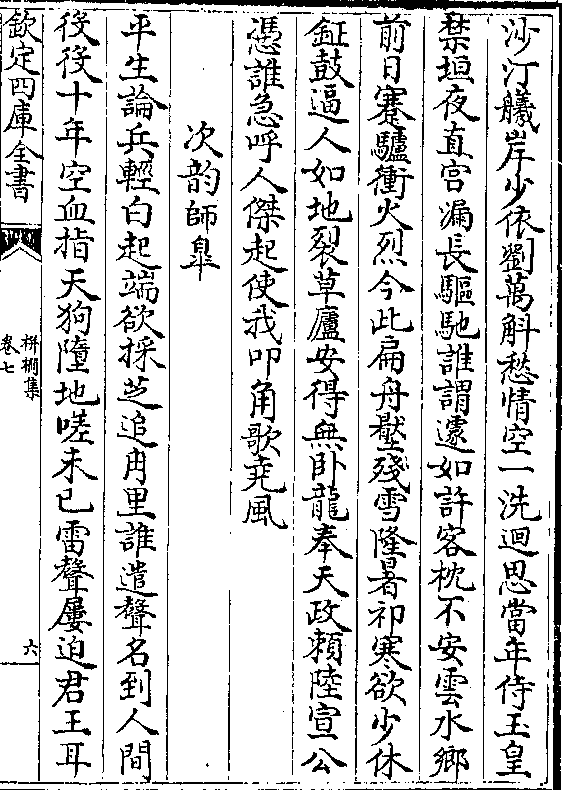 沙汀艤岸少依劉萬斛愁情空一洗迴思當年侍玉皇
禁垣夜直宫漏長驅馳誰謂遽如許客枕不安雲水鄉
前日蹇驢衝火烈今此扁舟壓殘雪隆暑祁寒欲少休
鉦鼓逼人如地裂草廬安得無卧龍奉天政頼陸宣公
憑誰急呼人傑起使我叩角歌堯風
次韵師臯
平生論兵輕白起端欲採芝追甪里誰遣聲名到人間
役役十年空血指天狗墮地嗟未已雷聲屢迫君王耳
欽定四庫全書
栟櫚集
卷七
六